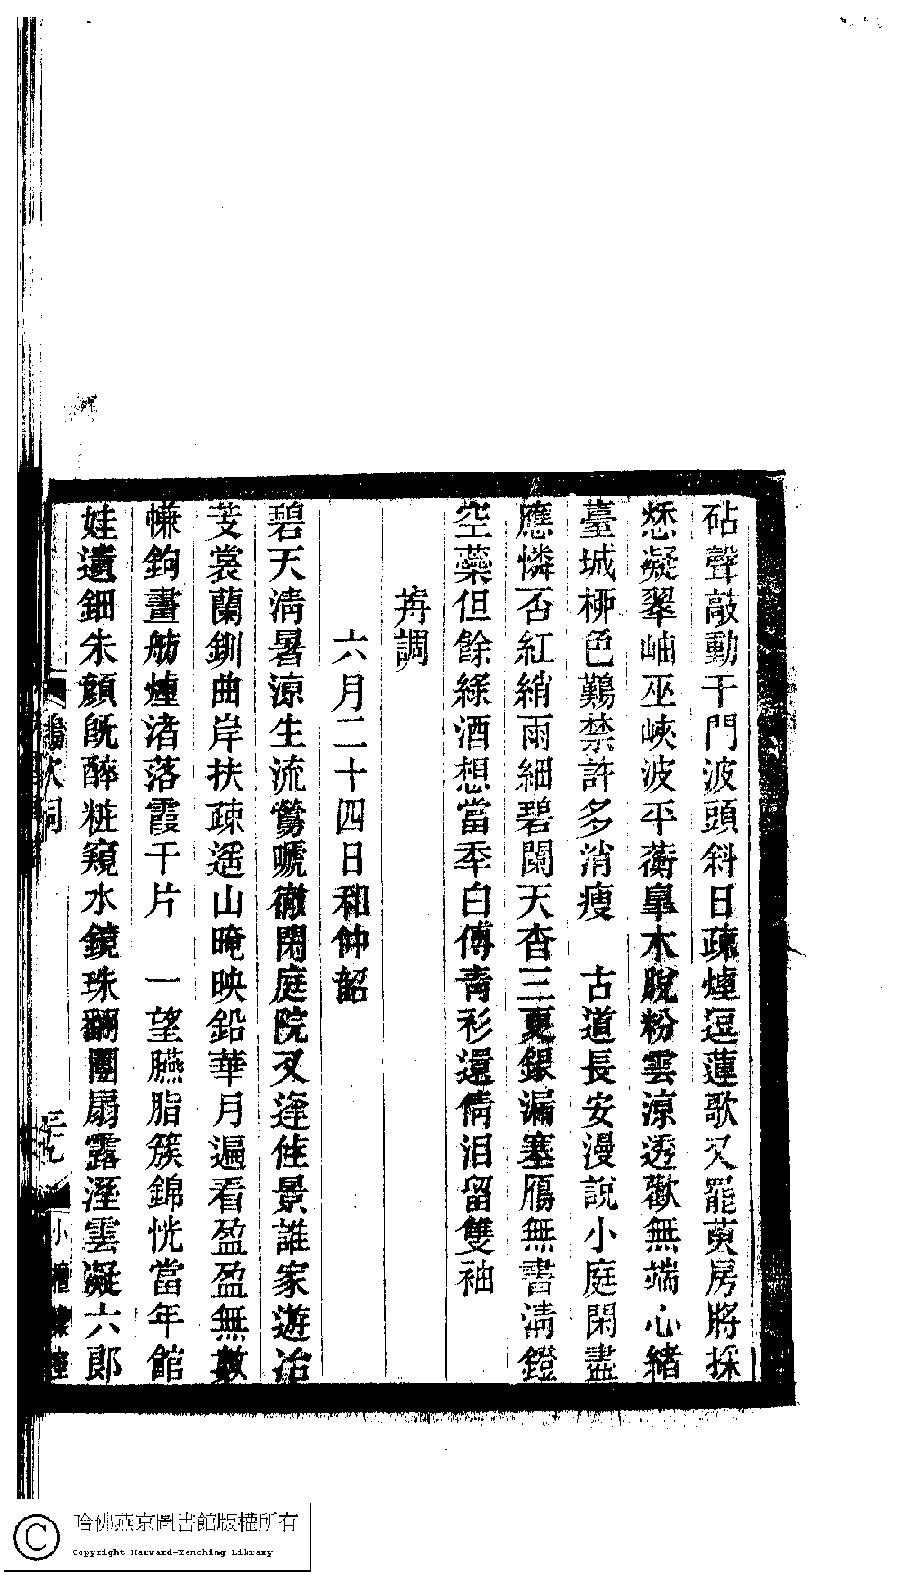 砧聲敲動千門波頭斜日疎煙逗蓮歌又罷萸房將採
愁凝翠岫巫峽波平蘅皐木脫粉雲涼透歡無端心緖
臺城栁色鷄禁許多消瘦　古道長安漫說小庭閑盡
應憐否紅綃雨細碧闌天杳三更銀漏塞鴈無書淸鐙
空藥但餘綠酒想當秊白傅靑衫還倩泪留雙袖
再調
六月二十四日和仲韶
碧天淸暑涼生流鶯嗁徹閑庭院又逢佳景誰家遊冶
芰裳蘭釧曲岸扶疎遥山晻映鉛華月遍看盈盈無數
㡘鉤畫舫煙渚落霞千片　一望臙脂簇錦恍當年館
娃遺鈿朱顏旣醉粧窺水鏡珠翻團扇露溼雲凝六郞
哈佛燕京圖書館版權所有
Copyright Harvard-Yenching Library